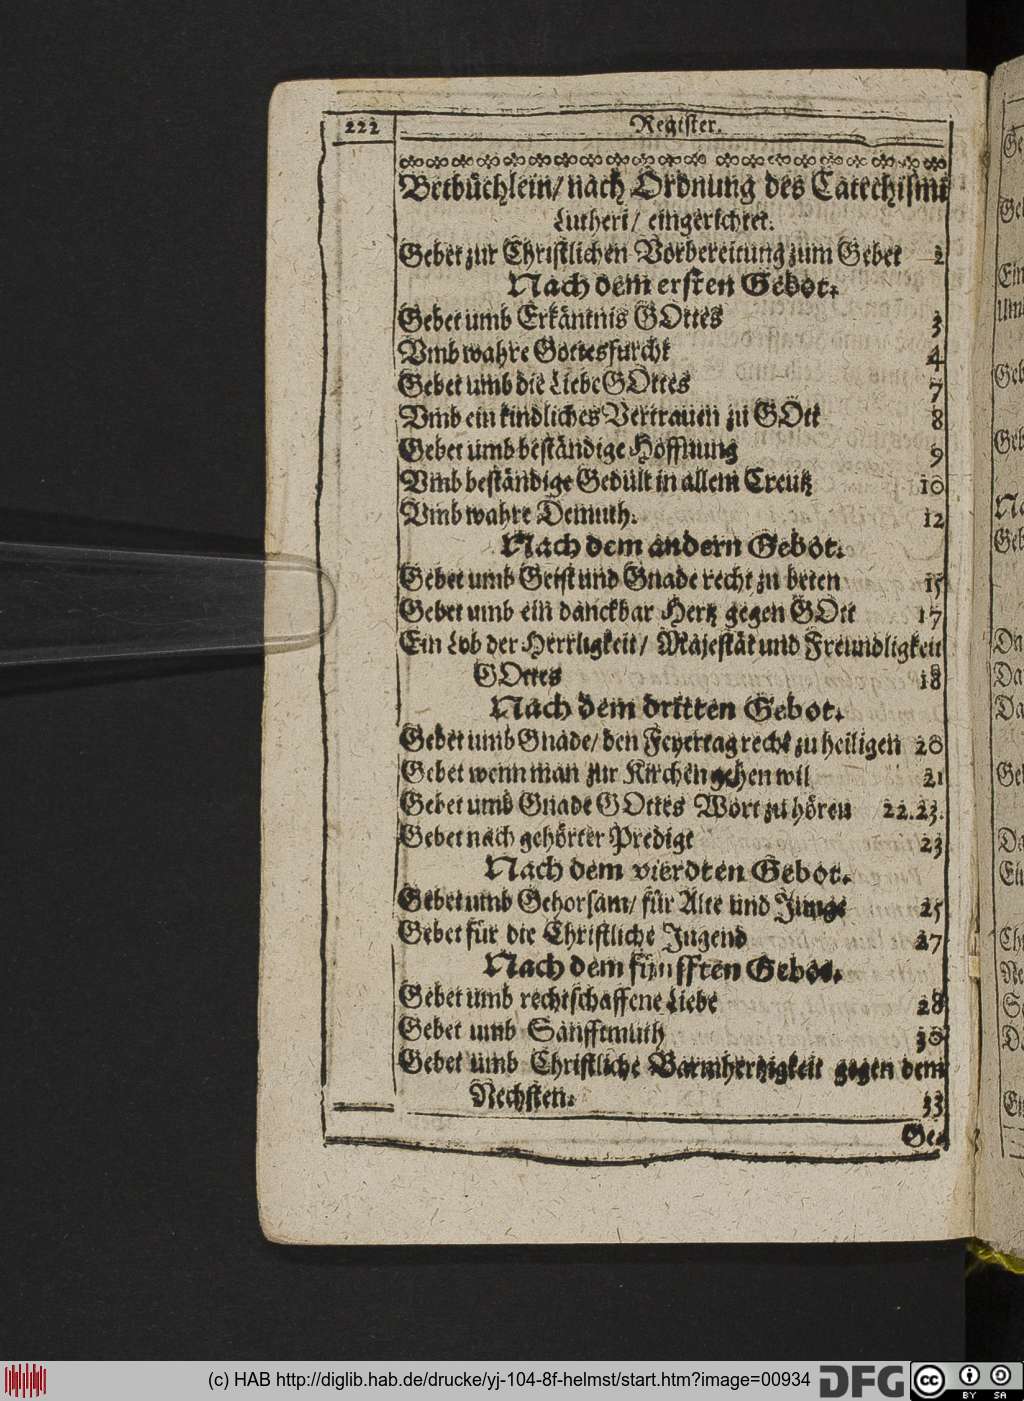 222
Register.
Betbüchlein/ nach Ordnung des Catechismi
Lutheri/ eingerichtet.
Gebet zur Christlichen Vorbereitung zum Gebet 2
Nach dem ersten Gebot.
Gebet umb Erkäntnis GOttes 3
Vmb wahre Gottesfurcht 4
Gebet umb die Liebe GOttes 7
Vmb ein kindliches Vertrauen zu GOtt 8
Gebet umb beständige Hoffnung 9
Vmb beständige Gedült in allem Creutz 10
Vmb wahre Demuth. 12
Nach dem andern Gebot.
Gebet umb Geist und Gnade recht zu beten 15
Gebet umb ein danckbar Hertz gegen GOtt 17
Ein Lob der Herrligkeit/ Majestät und Freundligkeit
GOttes 18
Nach dem dritten Gebot.
Gebet umb Gnade/ den Feyertag recht zu heiligen 20
Gebet wenn man zur Kirchen gehen wil 21
Gebet umb Gnade GOttes Wort zu hören 22.23.
Gebet nach gehörter Predigt 23
Nach dem vierdten Gebot.
Gebet umb Gehorsam/ für Alte und Junge 25
Gebet für die Christliche Jugend 27
Nach dem fünfften Gebot.
Gebet umb rechtschaffene Liebe 28
Gebet umb Sanfftmuth 30
Gebet umb Christliche Barmhertzigkeit gegen dem
Nechsten. 33
Ge=
(c) HAB http://diglib.hab.de/drucke/yj-104-8f-helmst/start.htm?image=00934
DFG
cc
BY SA